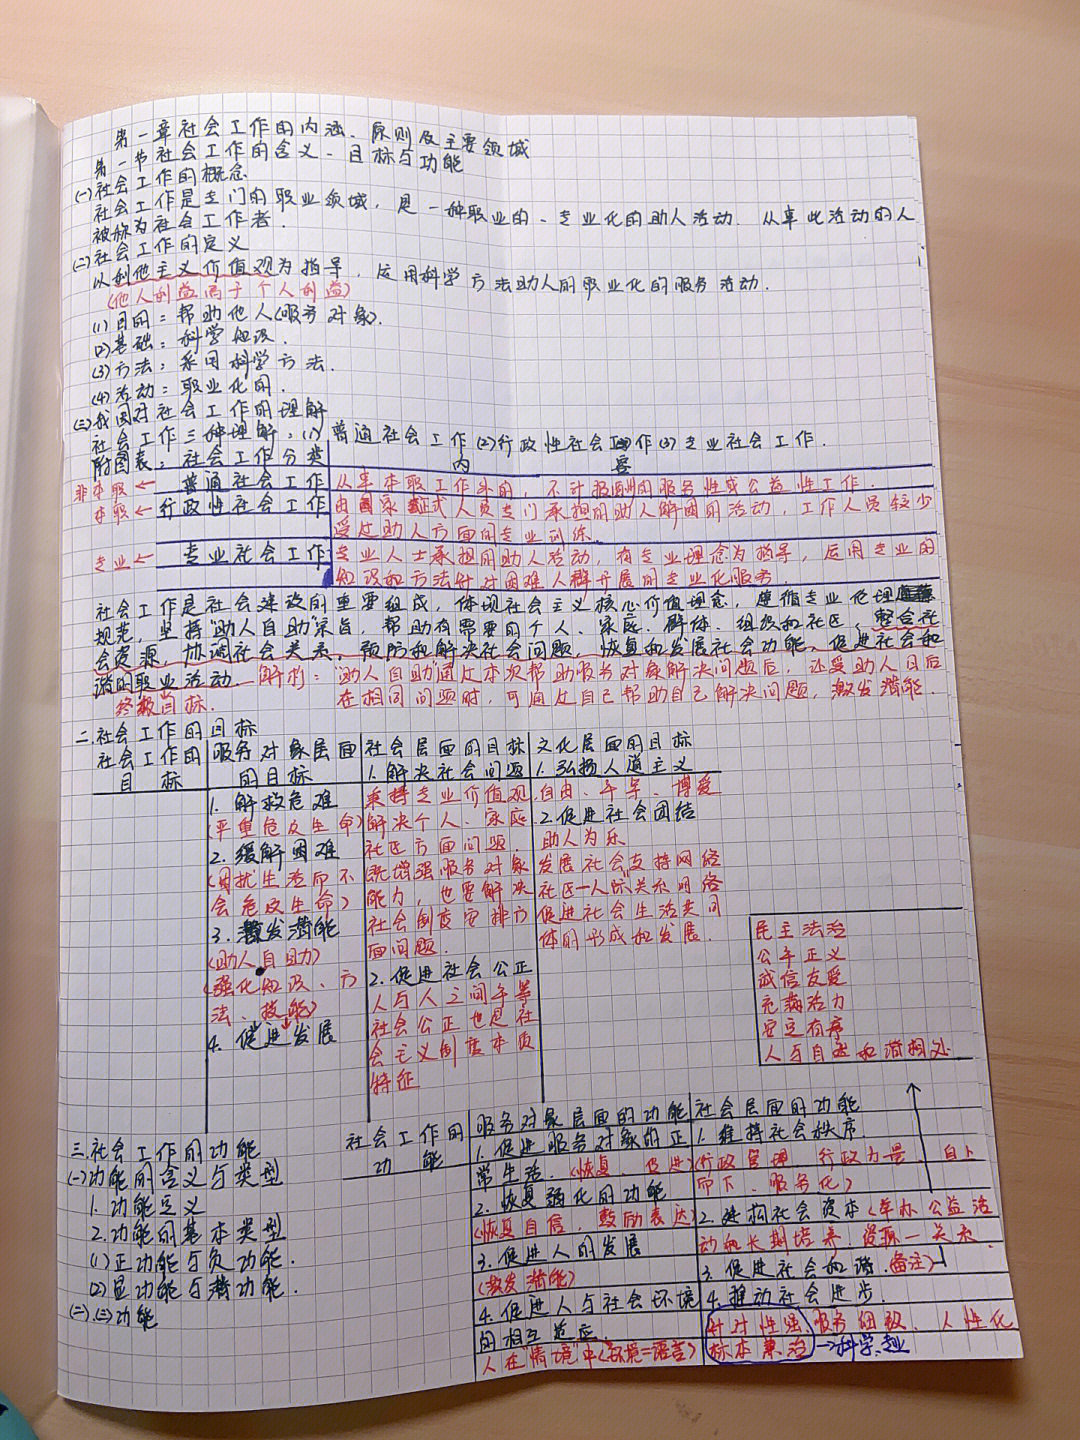 第一章社会工作的内涵、原则及主要领域
第一节社会工作的含义、目标与功能
(一)社会工作的概念
社会工作是专门的职业领域，是一种职业的、专业化的助人活动．从事此活动的人
被称为社会工作者．
(二)社会工作的定义
以利他主义价值观为指导，运用科学方法助人的职业化的服务活动．
(他人利益高于个人利益)
(1)目的：帮助他人(服务对象)．
(2)基础：科学知识．
(3)方法：采用科学方法．
(4)活动：职业化的．
(三)我国对社会工作的理解
社会工作三种理解：(1)普通社会工作(2)行政性社会工作(3)专业社会工作．
附图表：社会工作分类 内容
非本职← 普通社会工作 从事本职工作外的，不计报酬的服务性或公益性工作．
本职← 行政性社会工作 由国家正式人员专门承担的助人解困的活动，工作人员较少
受过助人方面的专业训练．
专业← 专业社会工作 专业人士承担的助人活动，有专业理念为指导，运用专业的
知识和方法针对困难人群开展的专业化服务．
社会工作是社会建设的重要组成，体现社会主义核心价值理念，遵循专业伦理
规范，坚持"助人自助"宗旨，帮助有需要的个人、家庭、群体、组织和社区，整合社
会资源，协调社会关系，预防和解决社会问题，恢复和发展社会功能，促进社会和
谐的职业活动．解析："助人自助"通过本次帮助服务对象解决问题后，还受助人日后
终极目标． 在相同问题时，可通过自己帮助自己解决问题，激发潜能．
二.社会工作的目标
社会工作的目标
服务对象层面的目标
1. 解救危难
(严重危及生命)
2. 缓解困难
(困扰生活而不
会危及生命)
3. 激发潜能
(助人自助)
(强化知识、方
法、技能)
4. 促进发展
社会层面的目标
1. 解决社会问题
秉持专业价值观
解决个人、家庭
社区方面问题．
既增强服务对象
能力，也要解决
社会制度安排方
面问题．
2. 促进社会公正
人与人之间平等
社会公正也是社
会主义制度本质
特征
文化层面的目标
1. 弘扬人道主义
自由、平等、博爱
2. 促进社会团结
助人为乐
发展社会支持网络
社区—人际关系网络
促进社会生活共同
体的形成和发展．
民主法治
公平正义
诚信友爱
充满活力
安定有序
人与自然和谐相处
三.社会工作的功能
(一)功能的含义与类型
1. 功能定义
2. 功能的基本类型
(1)正功能与负功能．
(2)显功能与潜功能．
(二).(三)功能
社会工作的功能
服务对象层面的功能
1. 促进服务对象的正
常生活．(恢复、促进)
2. 恢复弱化的功能
(恢复自信，鼓励表达)
3. 促进人的发展
(激发潜能)
4. 促进人与社会环境
的相互适应．
人在"情境"中(环境=语言)
社会层面的功能
1. 维持社会秩序．
(行政管理 行政力量 自上
而下、服务化)
2. 建构社会资本(举办公益活
动和长期培养．资源—关系．
3. 促进社会和谐．(备注)
4. 推动社会进步．
针对性强．服务细致．人性化
标本兼治→科学、专业